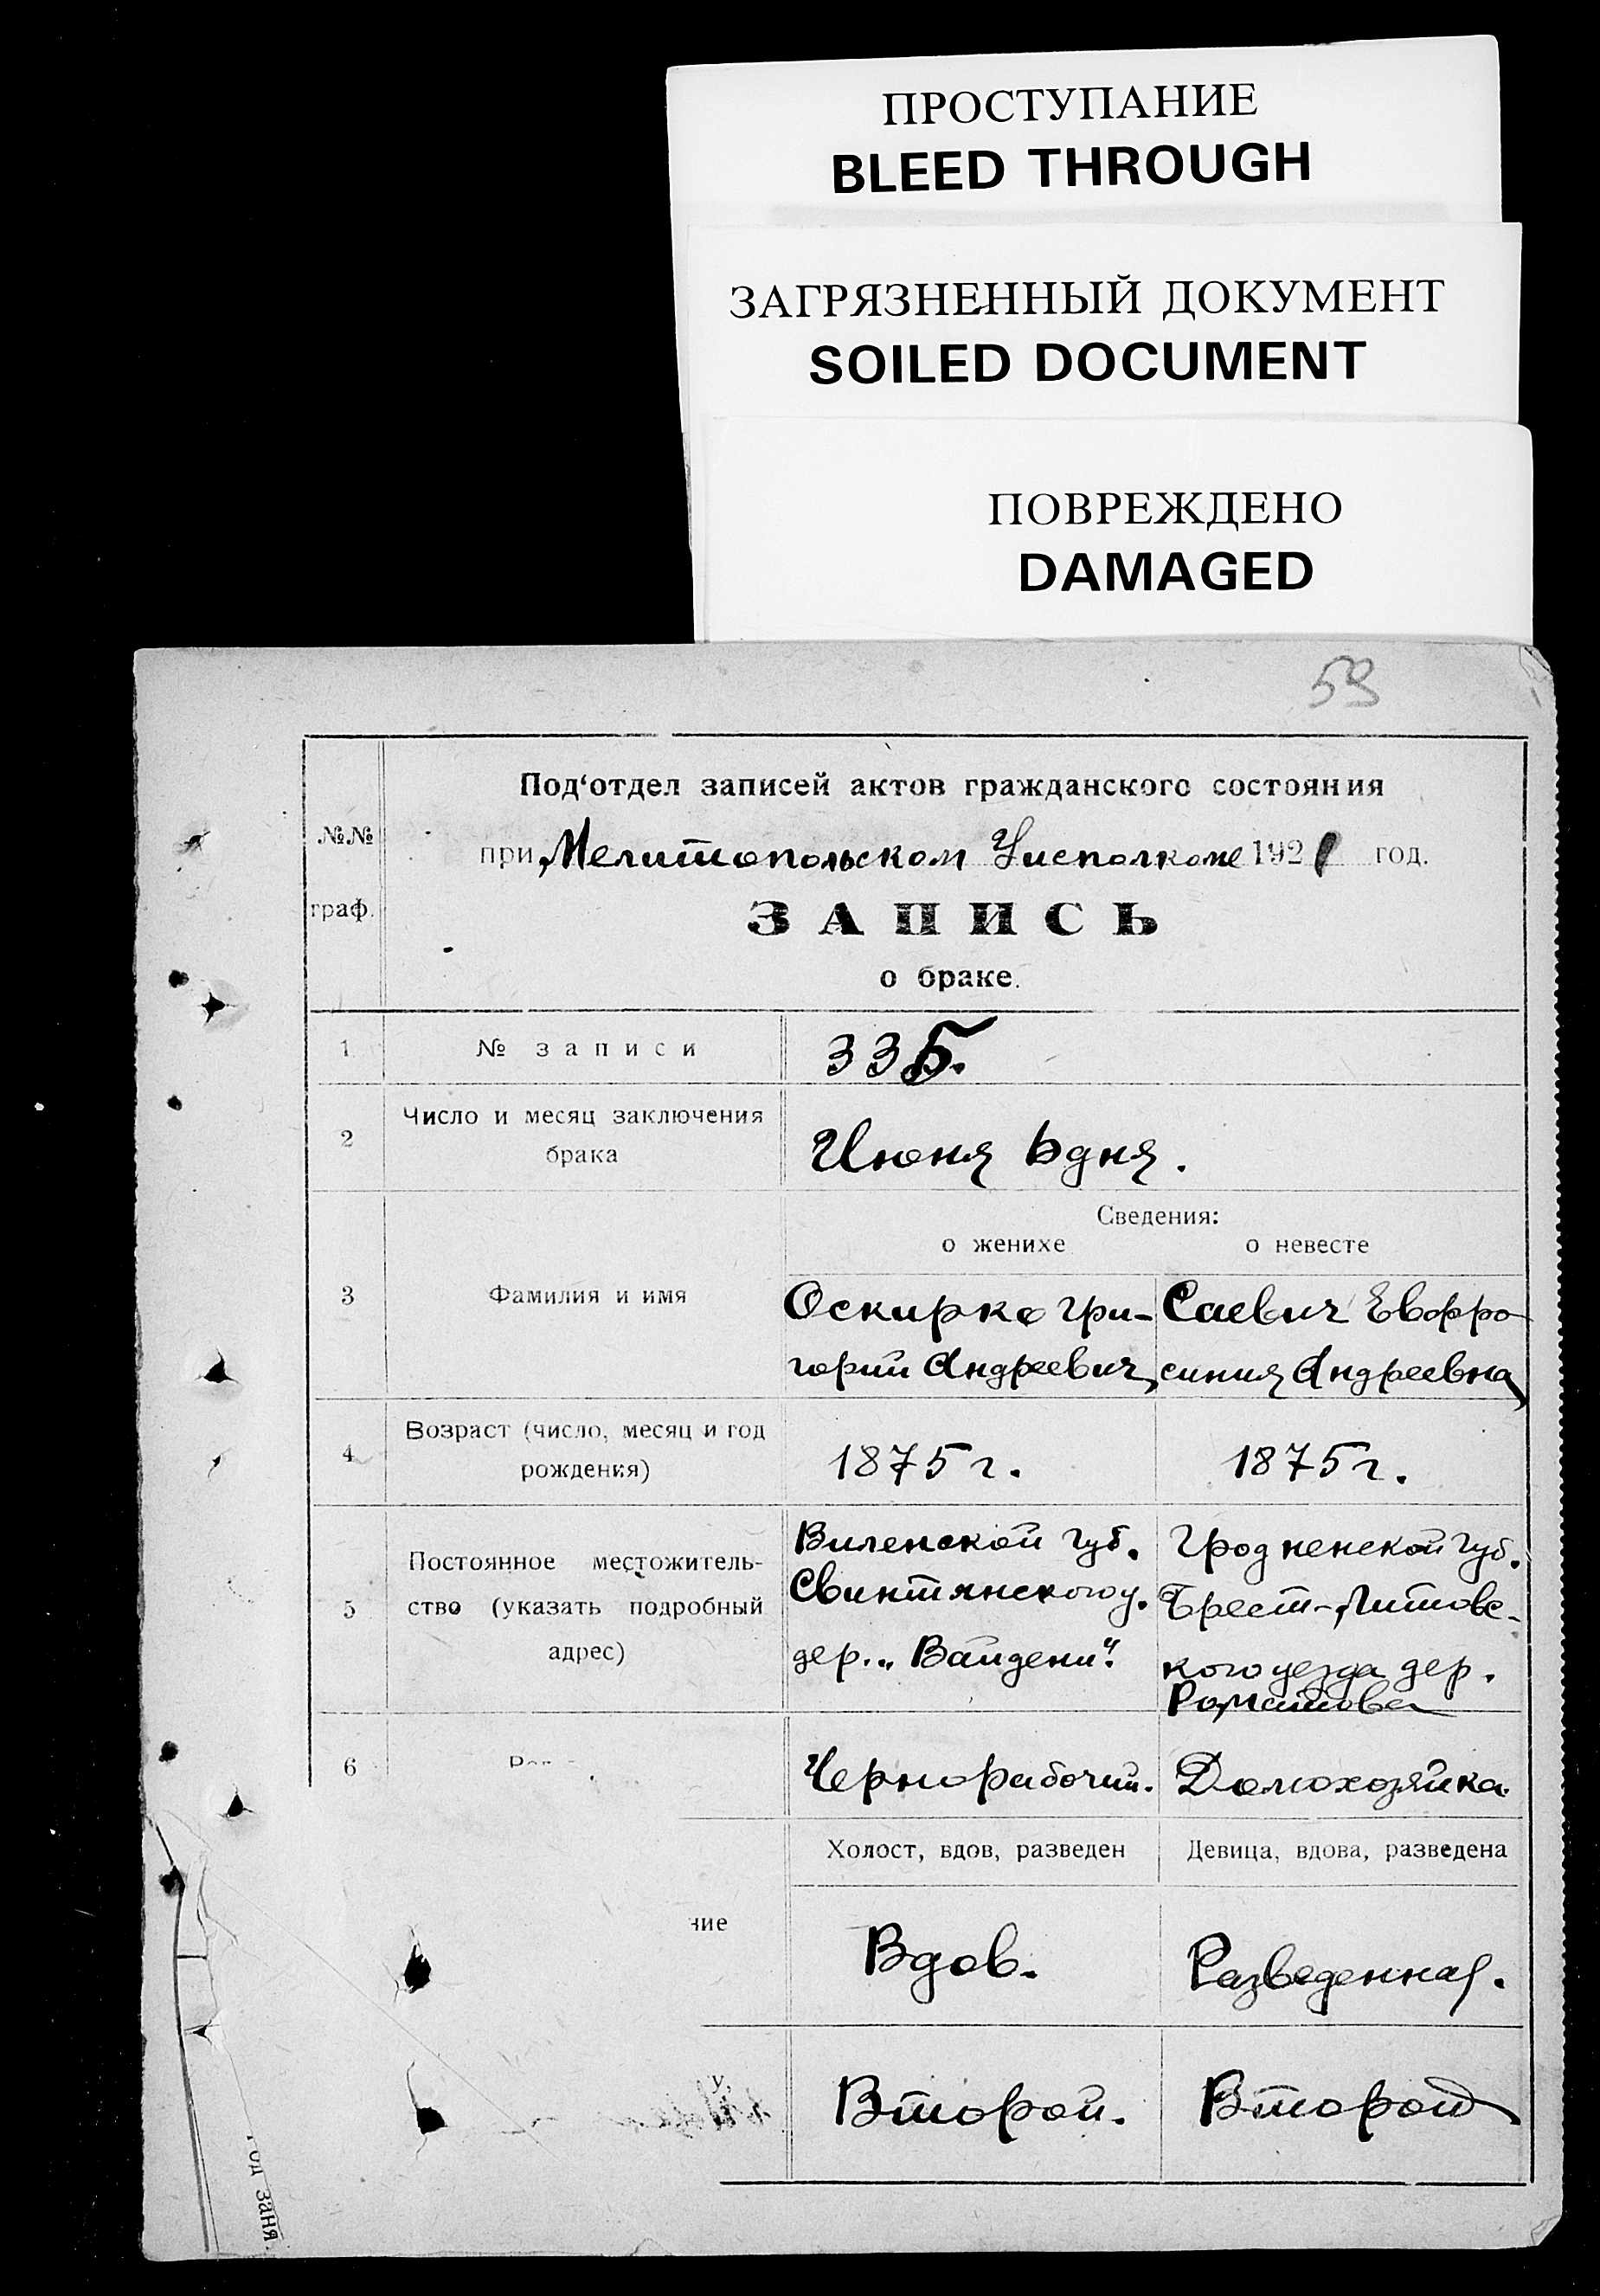 ПРОСТУПАНИЕ
BLEED THROUGH
ЗАГРЯЗНЕННЫЙ ДОКУМЕНТ
SOILED DOCUMENT
ПОВРЕЖДЕНО
DAMAGED
59
№№
граф.
Под‘отдел записей актов гражданского состояния
при Мелитопольском Уисполкоме 1921 год.
ЗАПИСЬ
о браке.
1
№ записи
335.
2
Число и месяц заключения
брака
Июня 6 дня.
Сведения:
о женихе
о невесте
3
Фамилия и имя
Оскирко Гри-
горий Андреевич
Саевич Евфро
синия Андреевна
4
Возраст (число, месяц и год
рождения)
1875 г.
1875 г.
5
Постоянное местожитель-
ство (указать подробный
адрес)
Виленской губ.
Свинтянского у.
дер. „Вайдени".
Гродненской губ.
Брест-Литовс-
кого уезда дер.
6
Чернорабочий.
Домохозяйка.
Холост, вдов, разведен
Девица, вдова, разведена
ние
Вдов.
Разведенная.
у.
Второй.
Второй
од заня